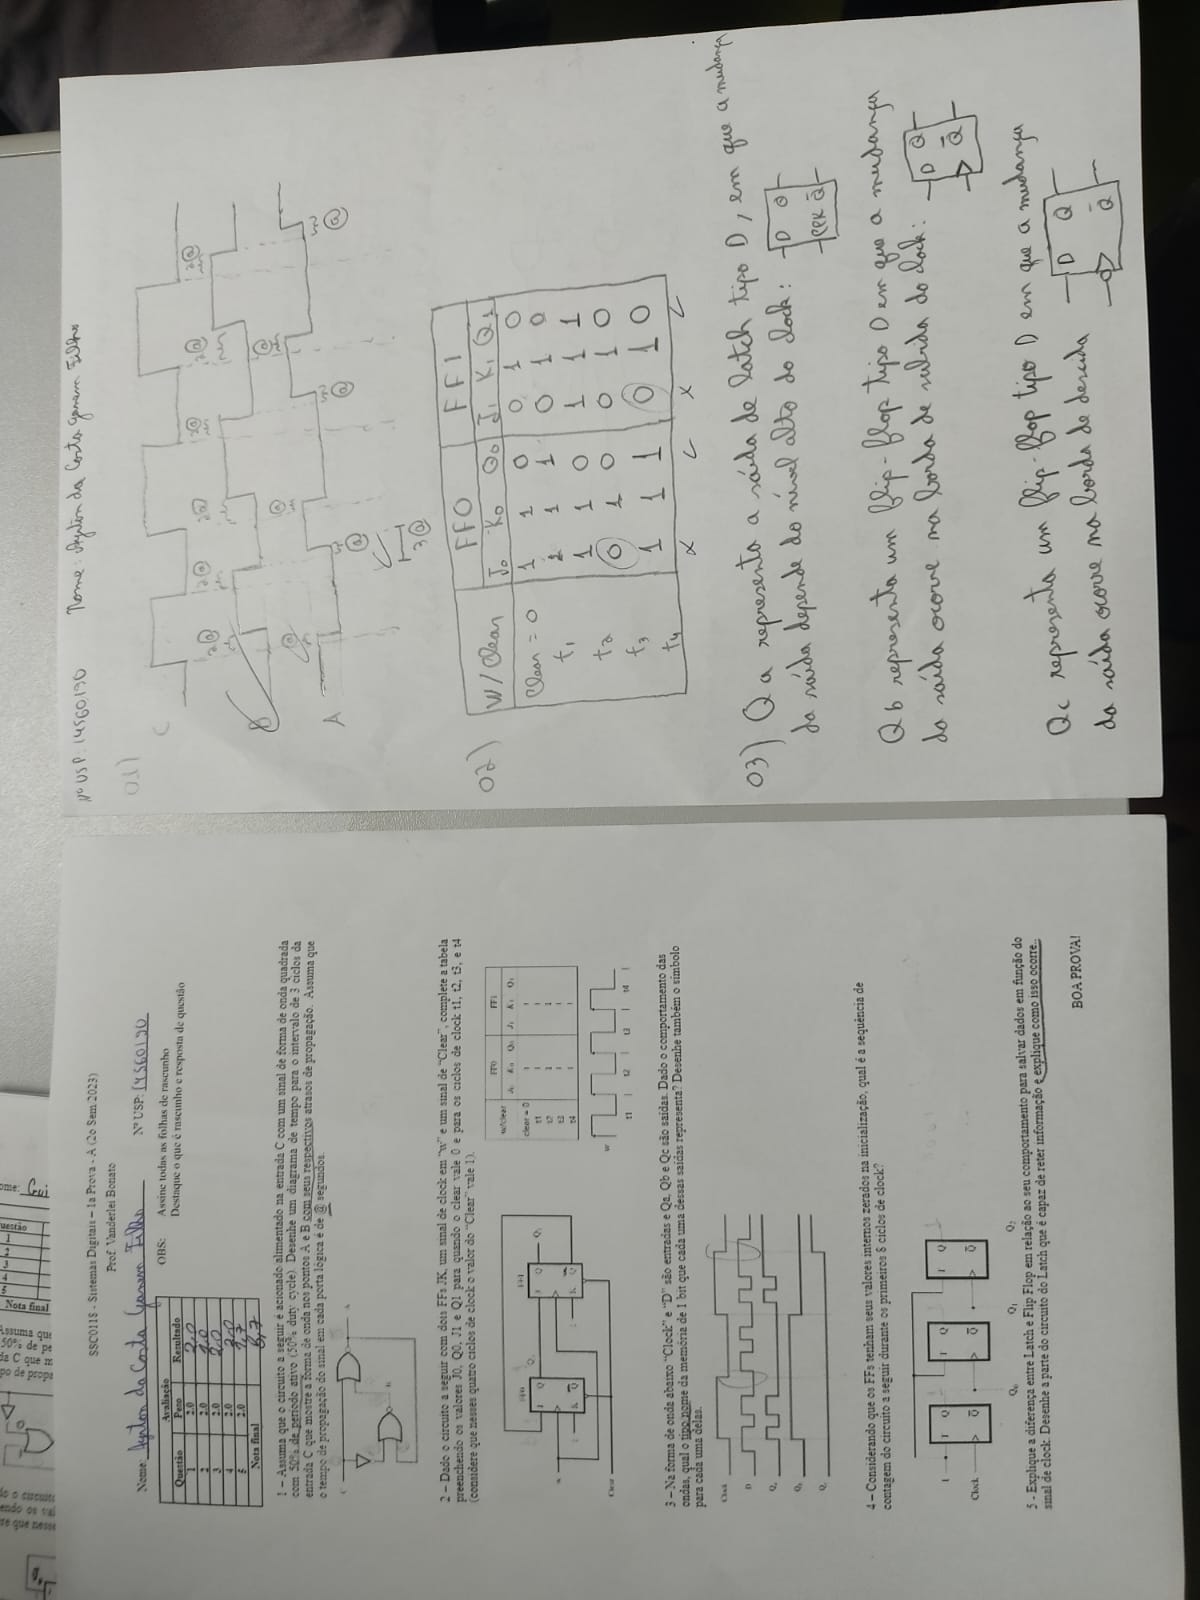 SSC0118 - Sistemas Digitais – 1a Prova - A (2o Sem 2023)
Prof. Vanderlei Bonato
Nome: Ayrton da Costa Ganem Filho Nº USP: 14560190
OBS: Assine todas as folhas de rascunho
Destaque o que é rascunho e resposta de questão
Avaliação
Questão Peso Resultado
1 2.0 2,0
2 2.0
3 2.0 2,0
4 2.0 2,0
5 2.0 1,7
Nota final 8,7
1 – Assuma que o circuito a seguir é acionado alimentado na entrada C com um sinal de forma de onda quadrada
com 50% de período ativo (50% duty cycle). Desenhe um diagrama de tempo para o intervalo de 3 ciclos da
entrada C que mostre a forma de onda nos pontos A e B com seus respectivos atrasos de propagação. Assuma que
o tempo de propagação do sinal em cada porta lógica é de @ segundos.
2 – Dado o circuito a seguir com dois FFs JK, um sinal de clock em "w" e um sinal de "Clear", complete a tabela
preenchendo os valores J0, Q0, J1 e Q1 para quando o clear vale 0 e para os ciclos de clock t1, t2, t3, e t4
(considere que nesses quatro ciclos de clock o valor do "Clear" vale 1).
FF0 FF1
J Q J Q
K Q K Q
Clear
w/clear FF0 FF1
J₀ K₀ Q₀ J₁ K₁ Q₁
clear = 0 1 1
t1 1 1
t2 1 1
t3 1 1
t4 1 1
w
t1 | t2 | t3 | t4 |
3 – Na forma de onda abaixo "Clock" e "D" são entradas e Qa, Qb e Qc são saídas. Dado o comportamento das
ondas, qual o tipo/nome da memória de 1 bit que cada uma dessas saídas representa? Desenhe também o símbolo
para cada uma delas.
Clock
D
4 – Considerando que os FFs tenham seus valores internos zerados na inicialização, qual é a sequência de
contagem do circuito a seguir durante os primeiros 8 ciclos de clock?
Q₀ Q₁ Q₂
1 T Q T Q T Q
Clock Q Q Q
5 - Explique a diferença entre Latch e Flip Flop em relação ao seu comportamento para salvar dados em função do
sinal de clock. Desenhe a parte do circuito do Latch que é capaz de reter informação e explique como isso ocorre.
BOA PROVA!
Nº USP: 14560190 Nome: Ayrton da Costa Ganem Filho
01)
C
B
A
3@
02)
W/Clear FF0 FF1
J₀ K₀ Q₀ J₁ K₁ Q₁
Clear = 0 1 1 0 0 1 0
t1 1 1 1 0 1 0
t2 1 1 0 1 1 1
t3 0 1 0 0 1 0
t4 1 1 1 0 1 0
03) Qa representa a saída de latch tipo D, em que a mudança
da saída depende do nível alto do clock:
D Q
CLK Q
Qb representa um flip-flop tipo D em que a mudança
da saída ocorre na borda de subida do clock:
D Q
Q
Qc representa um flip-flop tipo D em que a mudança
da saída ocorre na borda de descida
D Q
Q
Nota final